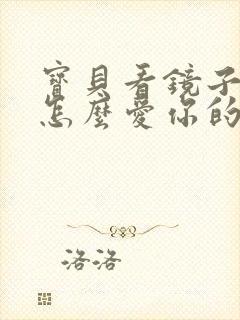 寶貝看鏡子
怎麼愛你的
洛洛